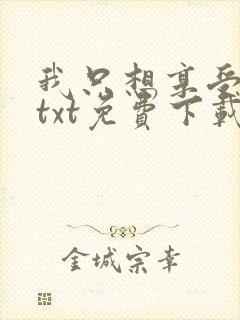 我只想享受
txt免费下载
金城宗幸